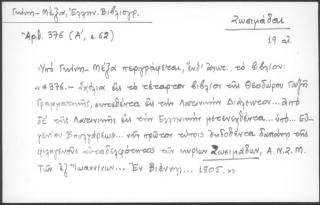 Γκίνη-Μέξα, Ἑλλην. Βιβλιογρ.
Ζωσιμάδαι
Ἀρθ. 376 (Α', σ. 62)
19 αἰ.
Ὑπὸ Γκίνη-Μέξα περιγράφεται, ἐνθ' ἀνωτ., τὸ βιβλίον:
«*376.- Σχόλια εἰς τὸ τέταρτον βιβλίον τῆς Θεοδώρου Γαζῆ
Γραμματικῆς, συντεθέντα εἰς τὴν Λατινικὴν Διάλεκτον... ἀπὸ
δὲ τῆς Λατινικῆς εἰς τὴν Ἑλληνικὴν μετενεχθέντα... ὑπὸ... Εὐ-
γενίου Βουλγάρεως... νῦν πρῶτον τύποις ἐκδοθέντα δαπάνῃ τῆς
φιλογενοῦς αὐταδελφότητος τῶν κυρίων Ζωσιμάδων, Α.Ν.Ζ.Μ.
Τῶν ἐξ Ἰωαννίνων... Ἐν Βιέννῃ... 1805.»